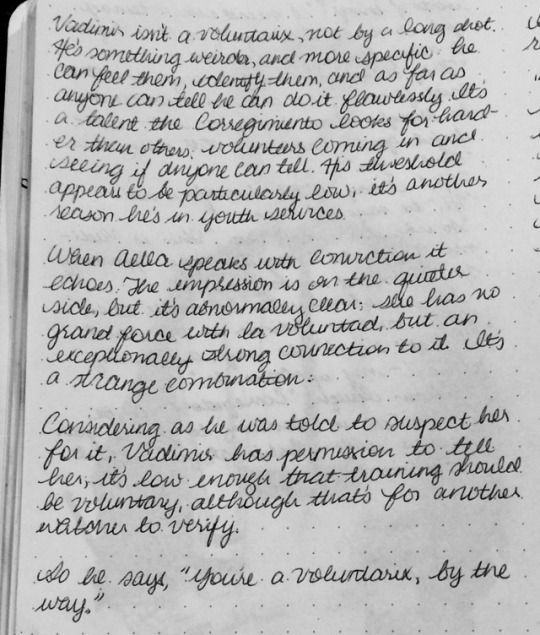 Vadimir isn't a voluntarix, not by a long shot.
He's something weirder, and more specific: he
can feel them, identify them, and as far as
anyone can tell he can do it flawlessly. It's
a talent the Corregimiento looks for hard-
er than others, volunteers coming in and
seeing if anyone can tell. His threshold
appears to be particularly low, it's another
reason he's in youth services.
When Aella speaks with conviction it
echoes. The impression is on the quieter
side, but it's abnormally clear: she has no
grand force with la voluntad, but an
exceptionally strong connection to it. It's
a strange combination.
Considering as he was told to suspect her
for it, Vadimir has permission to tell
her, it's low enough that training should
be voluntary, although that's for another
watcher to verify.
So he says, "You're a voluntarix, by the
way."